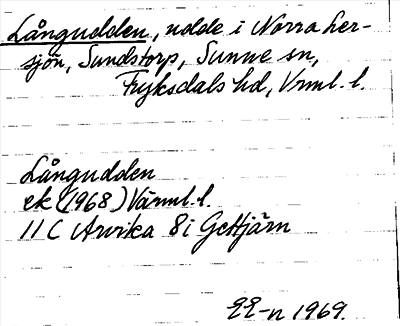 Långudden, udde i Norra Ler-
sjön, Sundstorp, Sunne sn,
Fryksdals hd, Vrml. l.
Långudden
ek (1968) Värml. l.
11 C Arvika 8 i Gettjärn
EE-n 1969.